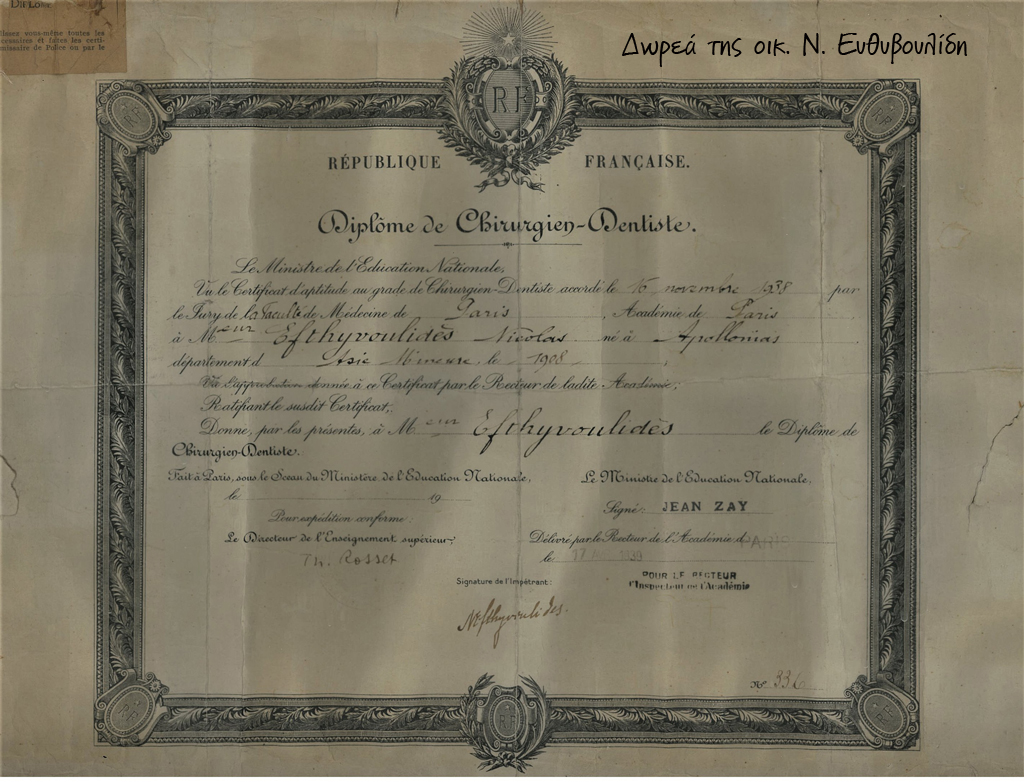 DIPLÔME
vous-même toutes les
et faites les certi-
de Police ou par le
Δωρεά της οικ. Ν. Ευθυβουλίδη
RF
RÉPUBLIQUE FRANÇAISE.
Diplôme de Chirurgien-Dentiste.
Le Ministre de l'Education Nationale,
Vu le Certificat d'aptitude au grade de Chirurgien-Dentiste accordé le 16 novembre 1938 par
le Jury de la Faculté de Médecine de Paris, Académie de Paris
à Meur Efthyvoulidès Nicolas né à Apollonias
département d Asie Mineure, le 1908;
Vu l'approbation donnée à ce Certificat par le Recteur de ladite Académie;
Ratifiant le susdit Certificat,
Donne, par les présentes, à Meur Efthyvoulidès le Diplôme de
Chirurgien-Dentiste.
Fait à Paris, sous le Sceau du Ministère de l'Education Nationale,
le 19
Pour expédition conforme:
Le Directeur de l'Enseignement supérieur,
Th. Rosset
Le Ministre de l'Education Nationale.
Signé: JEAN ZAY
Délivré par le Recteur de l'Académie d PARIS
le 17 1939
POUR LE RECTEUR
l'Inspecteur de l'Académie
Signature de l'Impétrant:
Nefthyvoulides.
No 336
RF